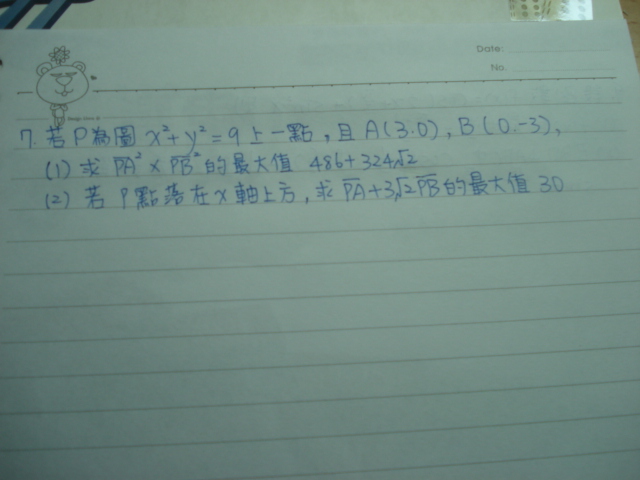 Date:
No.
7. 若P為圓 x²+y²=9上一點,且A(3.0), B(0.-3),
(1) 求 PA² × PB² 的最大值 486+324√2
(2) 若 P點落在x軸上方,求PA+3√2PB的最大值 30